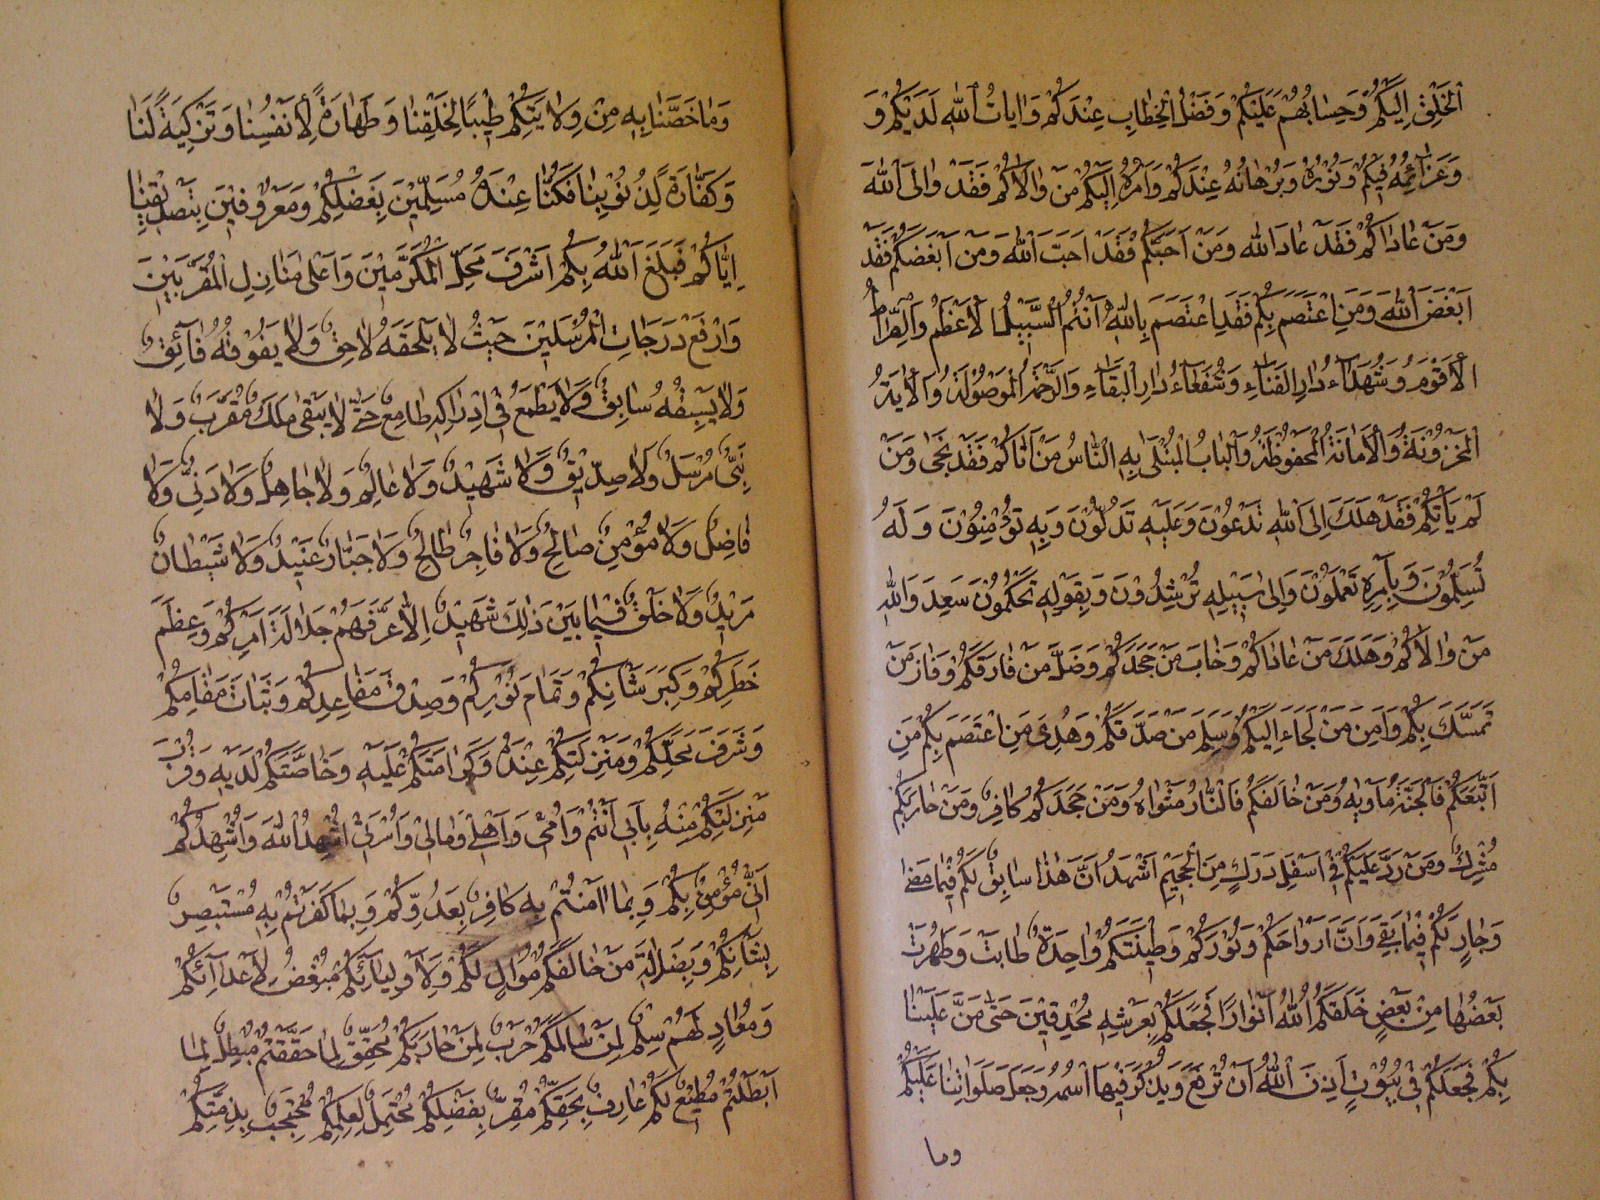 الْخَلْقِ اِلَيْكُمْ وَحِسَابُهُمْ عَلَيْكُمْ وَفَصْلُ الْخِطَابِ عِنْدَكُمْ وَايَاتُ اللهِ لَدَيْكُمْ وَ
وَعَزَائِمُهُ فِيكُمْ وَنُورُهُ وَبُرْهَانُهُ عِنْدَكُمْ وَاَمْرُهُ اِلَيْكُمْ مَنْ وَالاَكُمْ فَقَدْ وَالَى اللهَ
وَمَنْ عَادَاكُمْ فَقَدْ عَادَ اللهَ وَمَنْ اَحَبَّكُمْ فَقَدْ اَحَبَّ اللهَ وَمَنْ اَبْغَضَكُمْ فَقَدْ
اَبْغَضَ اللهَ وَمَنِ اعْتَصَمَ بِكُمْ فَقَدِ اعْتَصَمَ بِاللهِ اَنْتُمُ السَّبِيلُ الْاَعْظَمُ وَالصِّرَاطُ
الْاَقْوَمُ وَشُهَدَاءُ دَارِ الْفَنَاءِ وَشُفَعَاءُ دَارِ الْبَقَاءِ وَالرَّحْمَةُ الْمَوْصُولَةُ وَالْايَةُ
الْمَخْزُونَةُ وَالْاَمَانَةُ الْمَحْفُوظَةُ وَالْبَابُ الْمُبْتَلَى بِهِ النَّاسُ مَنْ اَتَاكُمْ فَقَدْ نَجَى وَمَنْ
لَمْ يَاْتِكُمْ فَقَدْ هَلَكَ اِلَى اللهِ تَدْعُونَ وَعَلَيْهِ تَدُلُّونَ وَبِهِ تُؤْمِنُونَ وَلَهُ
تُسَلِّمُونَ وَبِاَمْرِهِ تَعْمَلُونَ وَاِلَى سَبِيلِهِ تُرْشِدُونَ وَبِقَوْلِهِ تَحْكُمُونَ سَعِدَ وَاللهِ
مَنْ وَالاَكُمْ وَهَلَكَ مَنْ عَادَاكُمْ وَخَابَ مَنْ جَحَدَكُمْ وَضَلَّ مَنْ فَارَقَكُمْ وَفَازَ مَنْ
تَمَسَّكَ بِكُمْ وَاَمِنَ مَنْ لَجَاءَ اِلَيْكُمْ وَسَلِمَ مَنْ صَدَّقَكُمْ وَهُدِيَ مَنِ اعْتَصَمَ بِكُمْ مَنِ
اتَّبَعَكُمْ فَالْجَنَّةُ مَاْوٰيهُ وَمَنْ خَالَفَكُمْ فَالنَّارُ مَثْوَاهُ وَمَنْ جَحَدَكُمْ كَافِرٌ وَمَنْ حَارَبَكُمْ
مُشْرِكٌ وَمَنْ رَدَّ عَلَيْكُمْ فِي اَسْفَلِ دَرَكٍ مِنَ الْجَحِيمِ اَشْهَدُ اَنَّ هَذَا سَابِقٌ لَكُمْ فِيمَا مَضَى
وَجَارٍ لَكُمْ فِيمَا بَقِيَ وَاَنَّ اَرْوَاحَكُمْ وَنُورَكُمْ وَطِينَتَكُمْ وَاحِدَةٌ طَابَتْ وَطَهُرَتْ
بَعْضُهَا مِنْ بَعْضٍ خَلَقَكُمُ اللهُ اَنْوَارًا فَجَعَلَكُمْ بِعَرْشِهِ مُحْدِقِينَ حَتَّى مَنَّ عَلَيْنَا
بِكُمْ فَجَعَلَكُمْ فِي بُيُوتٍ اَذِنَ اللهُ اَنْ تُرْفَعَ وَيُذْكَرَ فِيهَا اسْمُهُ وَجَعَلَ صَلَوَاتِنَا عَلَيْكُمْ
وما
وَمَا خَصَّنَا بِهِ مِنْ وِلايَتِكُمْ طِيبًا لِخَلْقِنَا وَطَهَارَةً لِاَنْفُسِنَا وَتَزْكِيَةً لَنَا
وَكَفَّارَةً لِذُنُوبِنَا فَكُنَّا عِنْدَهُ مُسَلِّمِينَ بِفَضْلِكُمْ وَمَعْرُوفِينَ بِتَصْدِيقِنَا
اِيَّاكُمْ فَبَلَغَ اللهُ بِكُمْ اَشْرَفَ مَحَلِّ الْمُكَرَّمِينَ وَاَعْلَى مَنَازِلِ الْمُقَرَّبِينَ
وَارْفَعَ دَرَجَاتِ الْمُرْسَلِينَ حَيْثُ لَا يَلْحَقُهُ لَاحِقٌ وَلَا يَفُوقُهُ فَائِقٌ
وَلَا يَسْبِقُهُ سَابِقٌ وَلَا يَطْمَعُ فِي اِدْرَاكِهِ طَامِعٌ حَتَّى لَا يَبْقَى مَلَكٌ مُقَرَّبٌ وَلَا
نَبِيٌّ مُرْسَلٌ وَلَا صِدِّيقٌ وَلَا شَهِيدٌ وَلَا عَالِمٌ وَلَا جَاهِلٌ وَلَا دَنِيٌّ وَلَا
فَاضِلٌ وَلَا مُؤْمِنٌ صَالِحٌ وَلَا فَاجِرٌ طَالِحٌ وَلَا جَبَّارٌ عَنِيدٌ وَلَا شَيْطَانٌ
مَرِيدٌ وَلَا خَلْقٌ فِيمَا بَيْنَ ذَلِكَ شَهِيدٌ اِلَّا عَرَّفَهُمْ جَلَالَةَ اَمْرِكُمْ وَعِظَمَ
خَطَرِكُمْ وَكِبَرَ شَانِكُمْ وَتَمَامَ نُورِكُمْ وَصِدْقَ مَقَاعِدِكُمْ وَثَبَاتَ مَقَامِكُمْ
وَشَرَفَ مَحَلِّكُمْ وَمَنْزِلَتِكُمْ عِنْدَهُ وَكَرَامَتَكُمْ عَلَيْهِ وَخَاصَّتَكُمْ لَدَيْهِ وَقُرْبَ
مَنْزِلَتِكُمْ مِنْهُ بِاَبِي اَنْتُمْ وَاُمِّي وَاَهْلِي وَمَالِي وَاُسْرَتِي اُشْهِدُ اللهَ وَاُشْهِدُكُمْ
اَنِّي مُؤْمِنٌ بِكُمْ وَبِمَا امَنْتُمْ بِهِ كَافِرٌ بِعَدُوِّكُمْ وَبِمَا كَفَرْتُمْ بِهِ مُسْتَبْصِرٌ
بِشَانِكُمْ وَبِضَلَالَةِ مَنْ خَالَفَكُمْ مُوَالٍ لَكُمْ وَلِاَوْلِيَائِكُمْ مُبْغِضٌ لِاَعْدَائِكُمْ
وَمُعَادٍ لَهُمْ سِلْمٌ لِمَنْ سَالَمَكُمْ حَرْبٌ لِمَنْ حَارَبَكُمْ مُحَقِّقٌ لِمَا حَقَّقْتُمْ مُبْطِلٌ لِمَا
اَبْطَلْتُمْ مُطِيعٌ لَكُمْ عَارِفٌ بِحَقِّكُمْ مُقِرٌّ بِفَضْلِكُمْ مُحْتَمِلٌ لِعِلْمِكُمْ مُحْتَجِبٌ بِذِمَّتِكُمْ